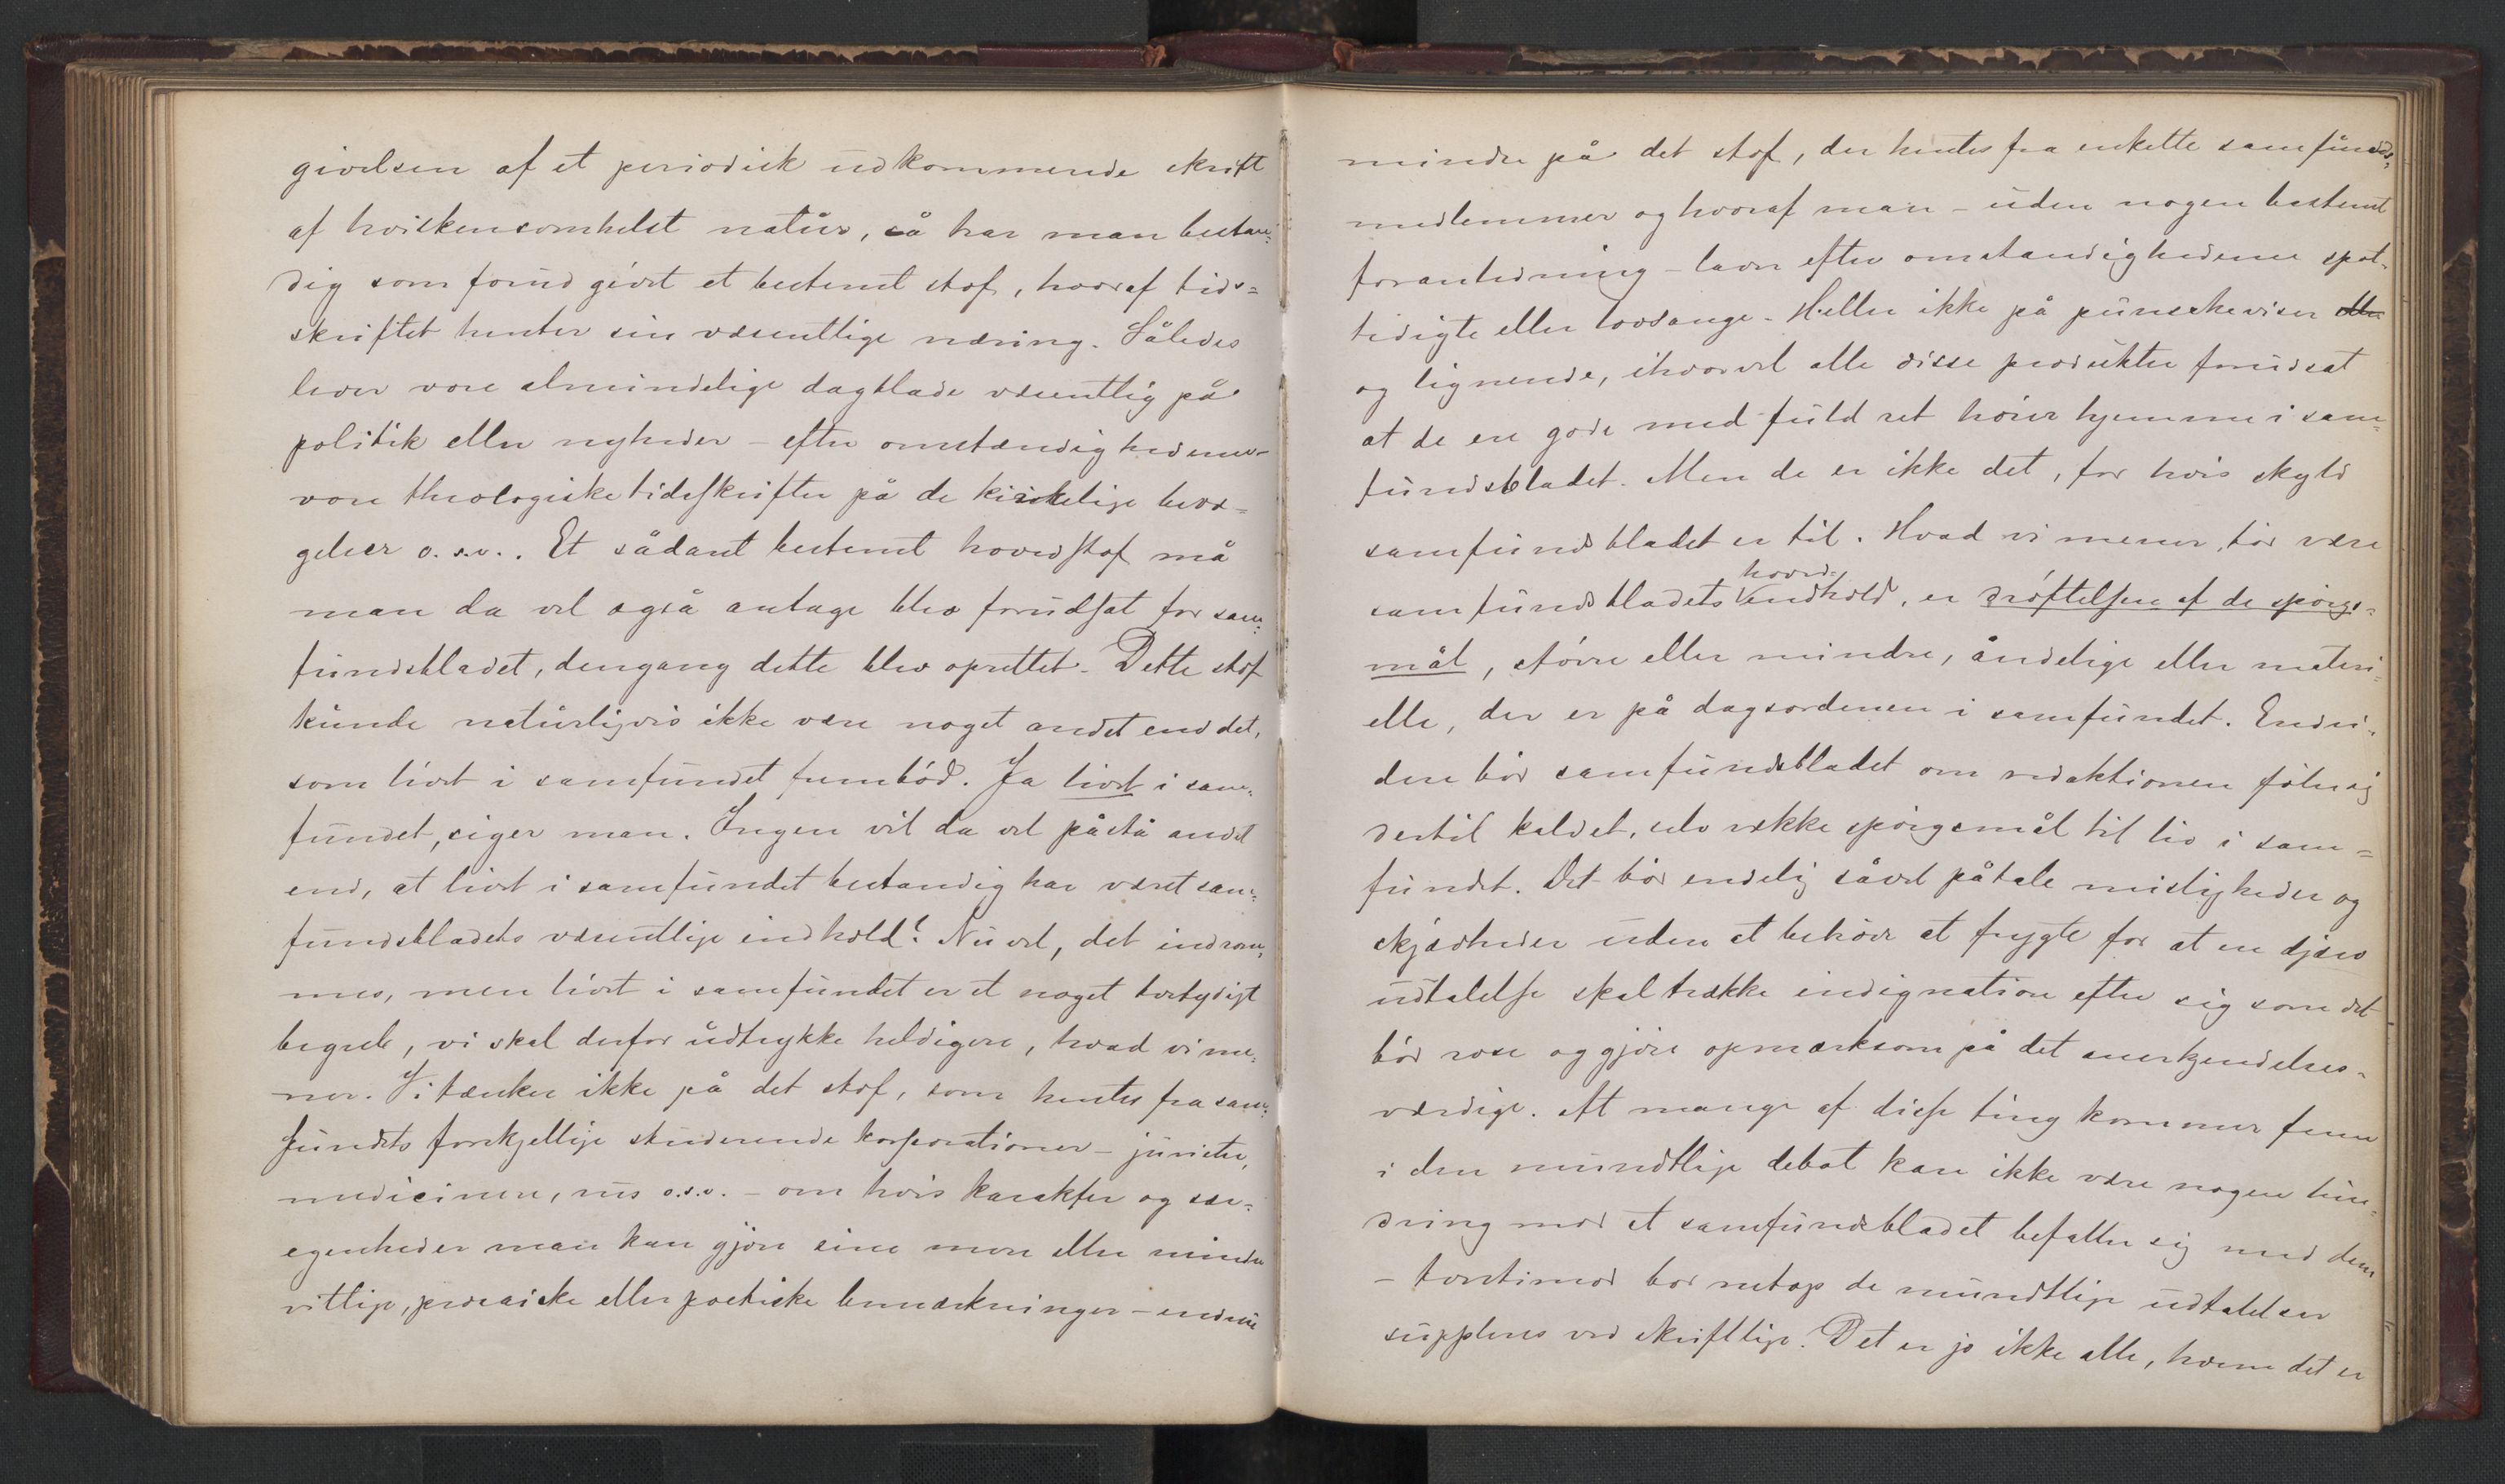 givelsen af et periodisk udkommende skrift
af hvilkensomhelst natur, så har man bestan-
dig som forud givet et bestemt stof, hvoraf tids=
skriftet henter sin væsentlige næring. Således
lever vore almindelige dagblade væsentlig på
politik eller nyheder – efter omstændighederne –
vore theologiske tidsskrifter på de kirkelige bevæ=
gelser o.s.v.. Et sådant bestemt hovedstof må
man da vel også antage blev forudsat for sam-
fundsbladet, dengang dette blev oprettet. Dette stof
kunde naturligvis ikke være noget andet end det,
som livet i samfundet frembød. Ja livet i sam-
fundet, siger man. Ingen vil da vel påstå andet
end, at livet i samfundet bestandig har været sam-
fundsbladets væsentlige indhold? Nu vel, det indrøm-
mes, men livet i samfundet er et noget tvetydigt
begreb, vi skal derfor udtrykke heldigere, hvad vi me-
ner. Vi tænker ikke på det stof, som hentes fra sam-
fundets forskjellige studerende korporationer – jurister,
medicinere, rus o.s.v. – om hvis karakter og sær-
egenheder man kan gjøre sine mere eller mindre
vittige, prosaiske eller poetiske bemærkninger – endnu
mindre på det stof, der hentes fra enkelte samfunds-
medlemmer og hvoraf man – uden nogen bestemt
foranledning – laver efter omstændighederne spot-
tedigte eller lovsange. Heller ikke på punscheviser eller
og lignende, ihvorvel alle disse produkter forudsat
at de ere gode med fuld ret hører hjemme i sam-
fundsbladet. Men de er ikke det, for hvis skyld
samfundsbladet er til. Hvad vi mener, bør være
samfundsbladets hovedindhold, er drøftelsen af de spørgs-
mål, større eller mindre, åndelige eller materi-
elle, der er på dagsordenen i samfundet. Endvi-
dere bør samfundsbladet om redaktionen føler sig
dertil kaldet, selv vække spørgsmål til liv i sam=
fundet. Det bør endelig såvel påtale misligheder og
skjævheder uden at behøve at frygte for at en djærv
udtalelse skal trække indignation efter sig som det
bør rose og gjøre opmærksom på det anerkjendelses-
værdige. At mange af disse ting kommer frem
i den mundtlige debat kan ikke være nogen hin-
dring mod at samfundsbladet befatter sig med dem
– tvertimod bør netop de mundtlige udtalelser
suppleres ved skriftlige. Det er jo ikke alle, hvem det er